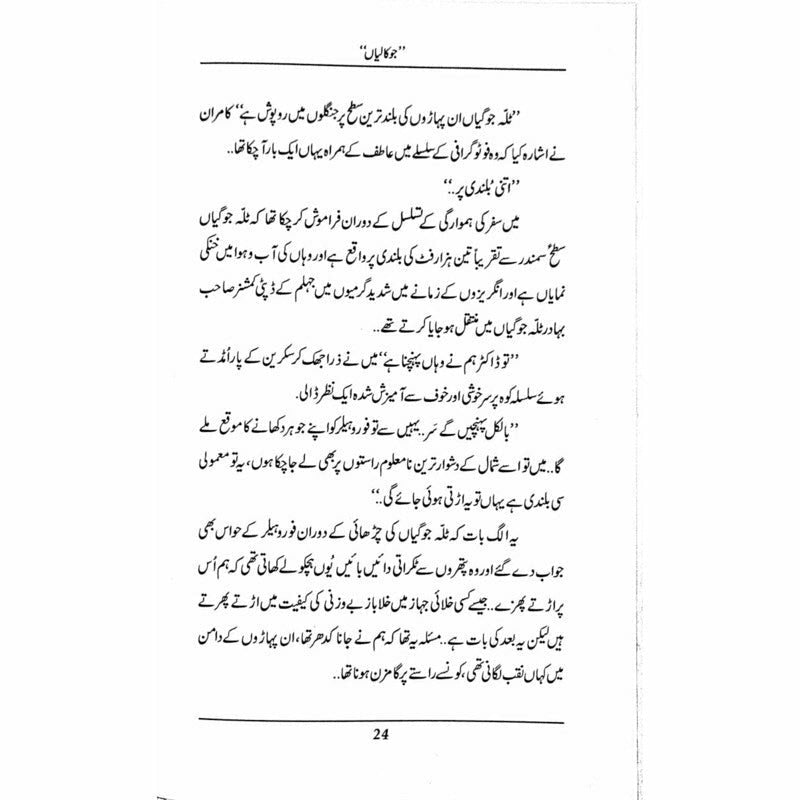 ’’جوکالیاں‘‘
’’ٹلّہ جوگیاں ان پہاڑوں کی بلند ترین سطح پر جنگلوں میں روپوش ہے‘‘ کامران
نے اشارہ کیا کہ وہ فوٹوگرافی کے سلسلے میں عاطف کے ہمراہ یہاں ایک بار آ چکا تھا..
’’اتنی بُلندی پر..‘‘
میں سفر کی ہمواری کے تسلسل کے دوران فراموش کر چکا تھا کہ ٹلّہ جوگیاں
سطحِ سمندر سے تقریباً تین ہزار فٹ کی بلندی پر واقع ہے اور وہاں کی آب و ہوا میں خنکی
نمایاں ہے اور انگریزوں کے زمانے میں شدید گرمیوں میں جہلم کے ڈپٹی کمشنر صاحب
بہادر ٹلّہ جوگیاں میں منتقل ہو جایا کرتے تھے..
’’تو ڈاکٹر ہم نے وہاں پہنچنا ہے‘‘ میں نے ذرا جھک کر سکرین کے پار اُمڈتے
ہوئے سلسلہ کوہ پر سرخوشی اور خوف سے آمیزش شدہ ایک نظر ڈالی.
’’بالکل پہنچیں گے سَر.. یہیں سے تو فور وہیلر کو اپنے جوہر دکھانے کا موقع ملے
گا.. میں تو اسے شمال کے دشوار ترین نامعلوم راستوں پر بھی لے جا چکا ہوں، یہ تو معمولی
سی بلندی ہے یہاں تو یہ اڑتی ہوئی جائے گی..‘‘
یہ الگ بات کہ ٹلّہ جوگیاں کی چڑھائی کے دوران فور وہیلر کے حواس بھی
جواب دے گئے اور وہ پتھروں سے ٹکراتی دائیں بائیں یُوں ہچکولے کھاتی تھی کہ ہم اُس
پر اڑتے پھرے.. جیسے کسی خلائی جہاز میں خلاباز بے وزنی کی کیفیت میں اڑتے پھرتے
ہیں لیکن یہ بعد کی بات ہے.. مسئلہ یہ تھا کہ ہم نے جانا کدھر تھا، ان پہاڑوں کے دامن
میں کہاں نقب لگانی تھی، کونسے راستے پر گامزن ہونا تھا..
24